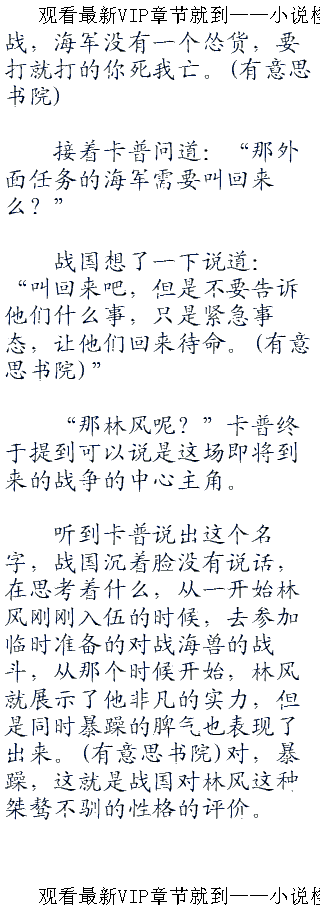 观看最新VIP章节就到——小说检
战，海军没有一个怂货，要
打就打的你死我亡。(有意思
书院)
接着卡普问道：“那外
面任务的海军需要叫回来
么？”
战国想了一下说道：
“叫回来吧，但是不要告诉
他们什么事，只是紧急事
态，让他们回来待命。(有意
思书院)”
“那林风呢？”卡普终
于提到可以说是这场即将到
来的战争的中心主角。
听到卡普说出这个名
字，战国沉着脸没有说话，
在思考着什么，从一开始林
风刚刚入伍的时候，去参加
临时准备的对战海兽的战
斗，从那个时候开始，林风
就展示了他非凡的实力，但
是同时暴躁的脾气也表现了
出来。(有意思书院)对，暴
躁，这就是战国对林风这种
桀骜不驯的性格的评价。
观看最新VIP章节就到——小说检